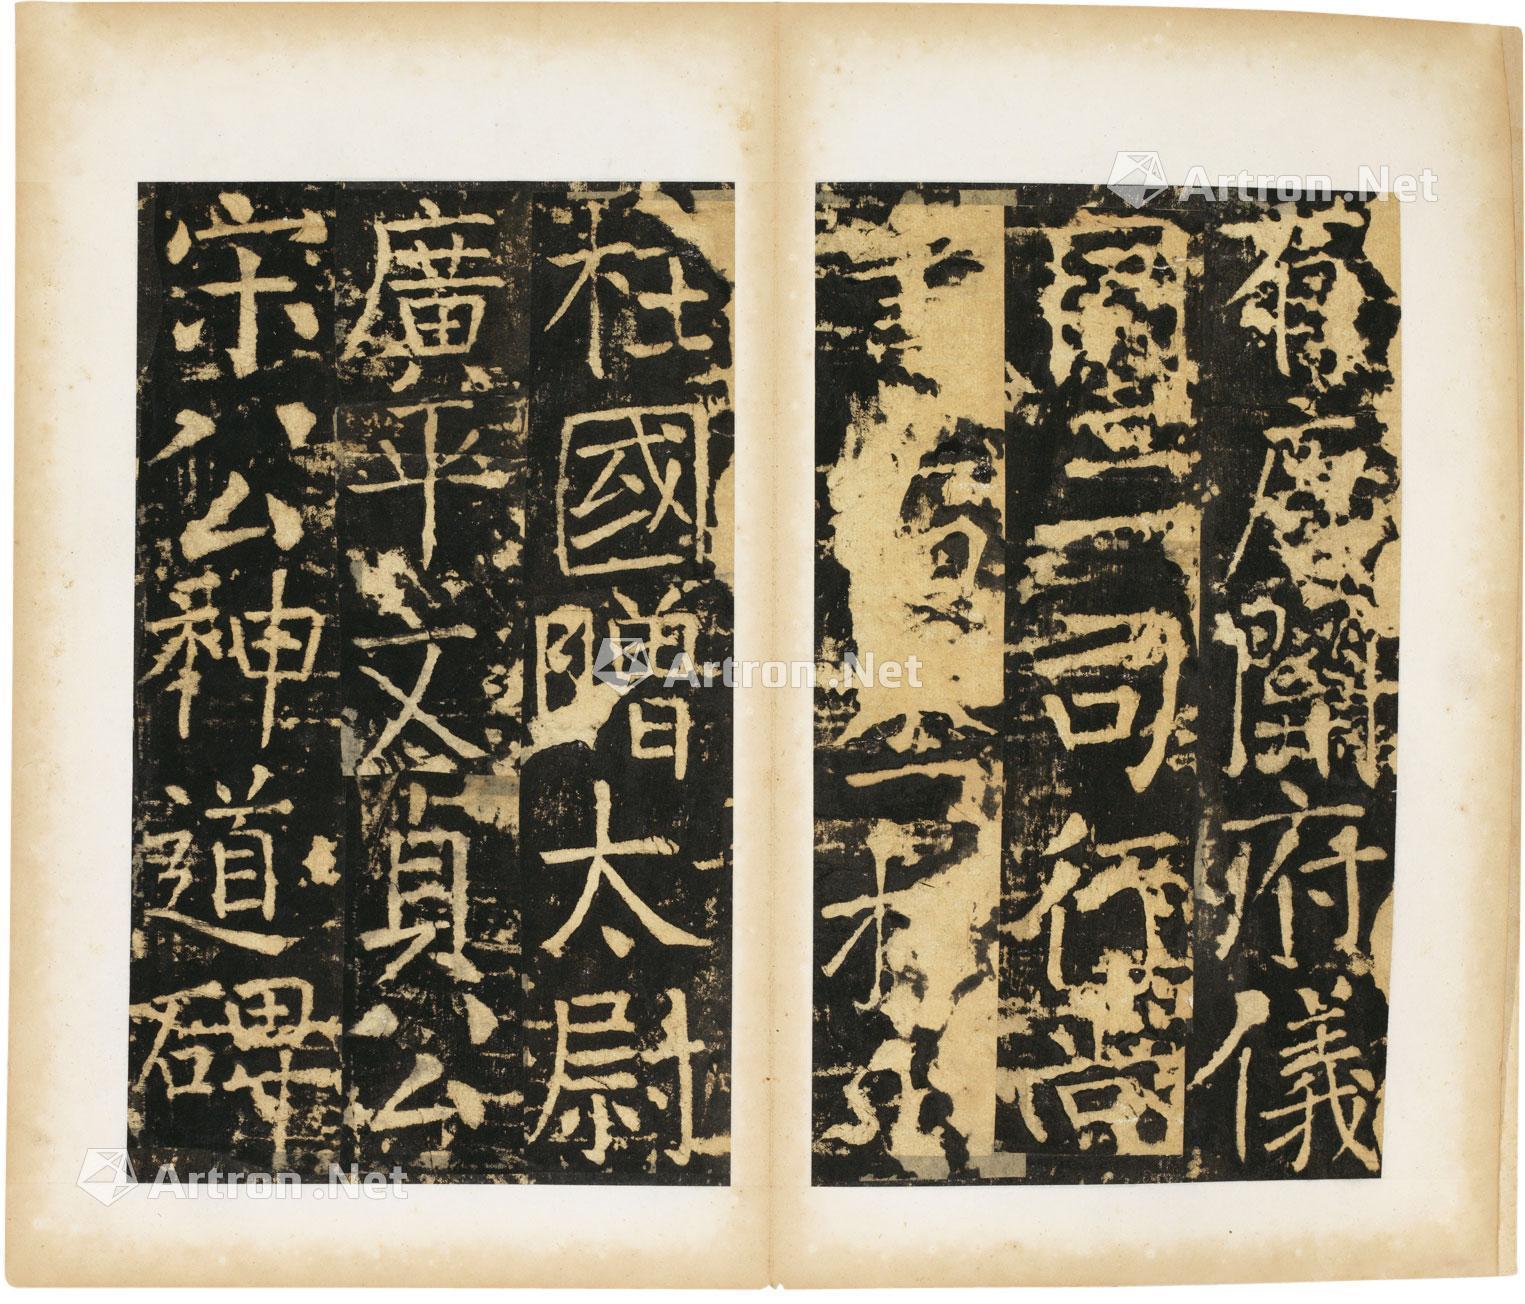 有唐開府儀
同三司行尚
相
柱國贈太尉
廣平文貞公
宋公神道碑
Artron.Net
Artron.Net
Artron.Net